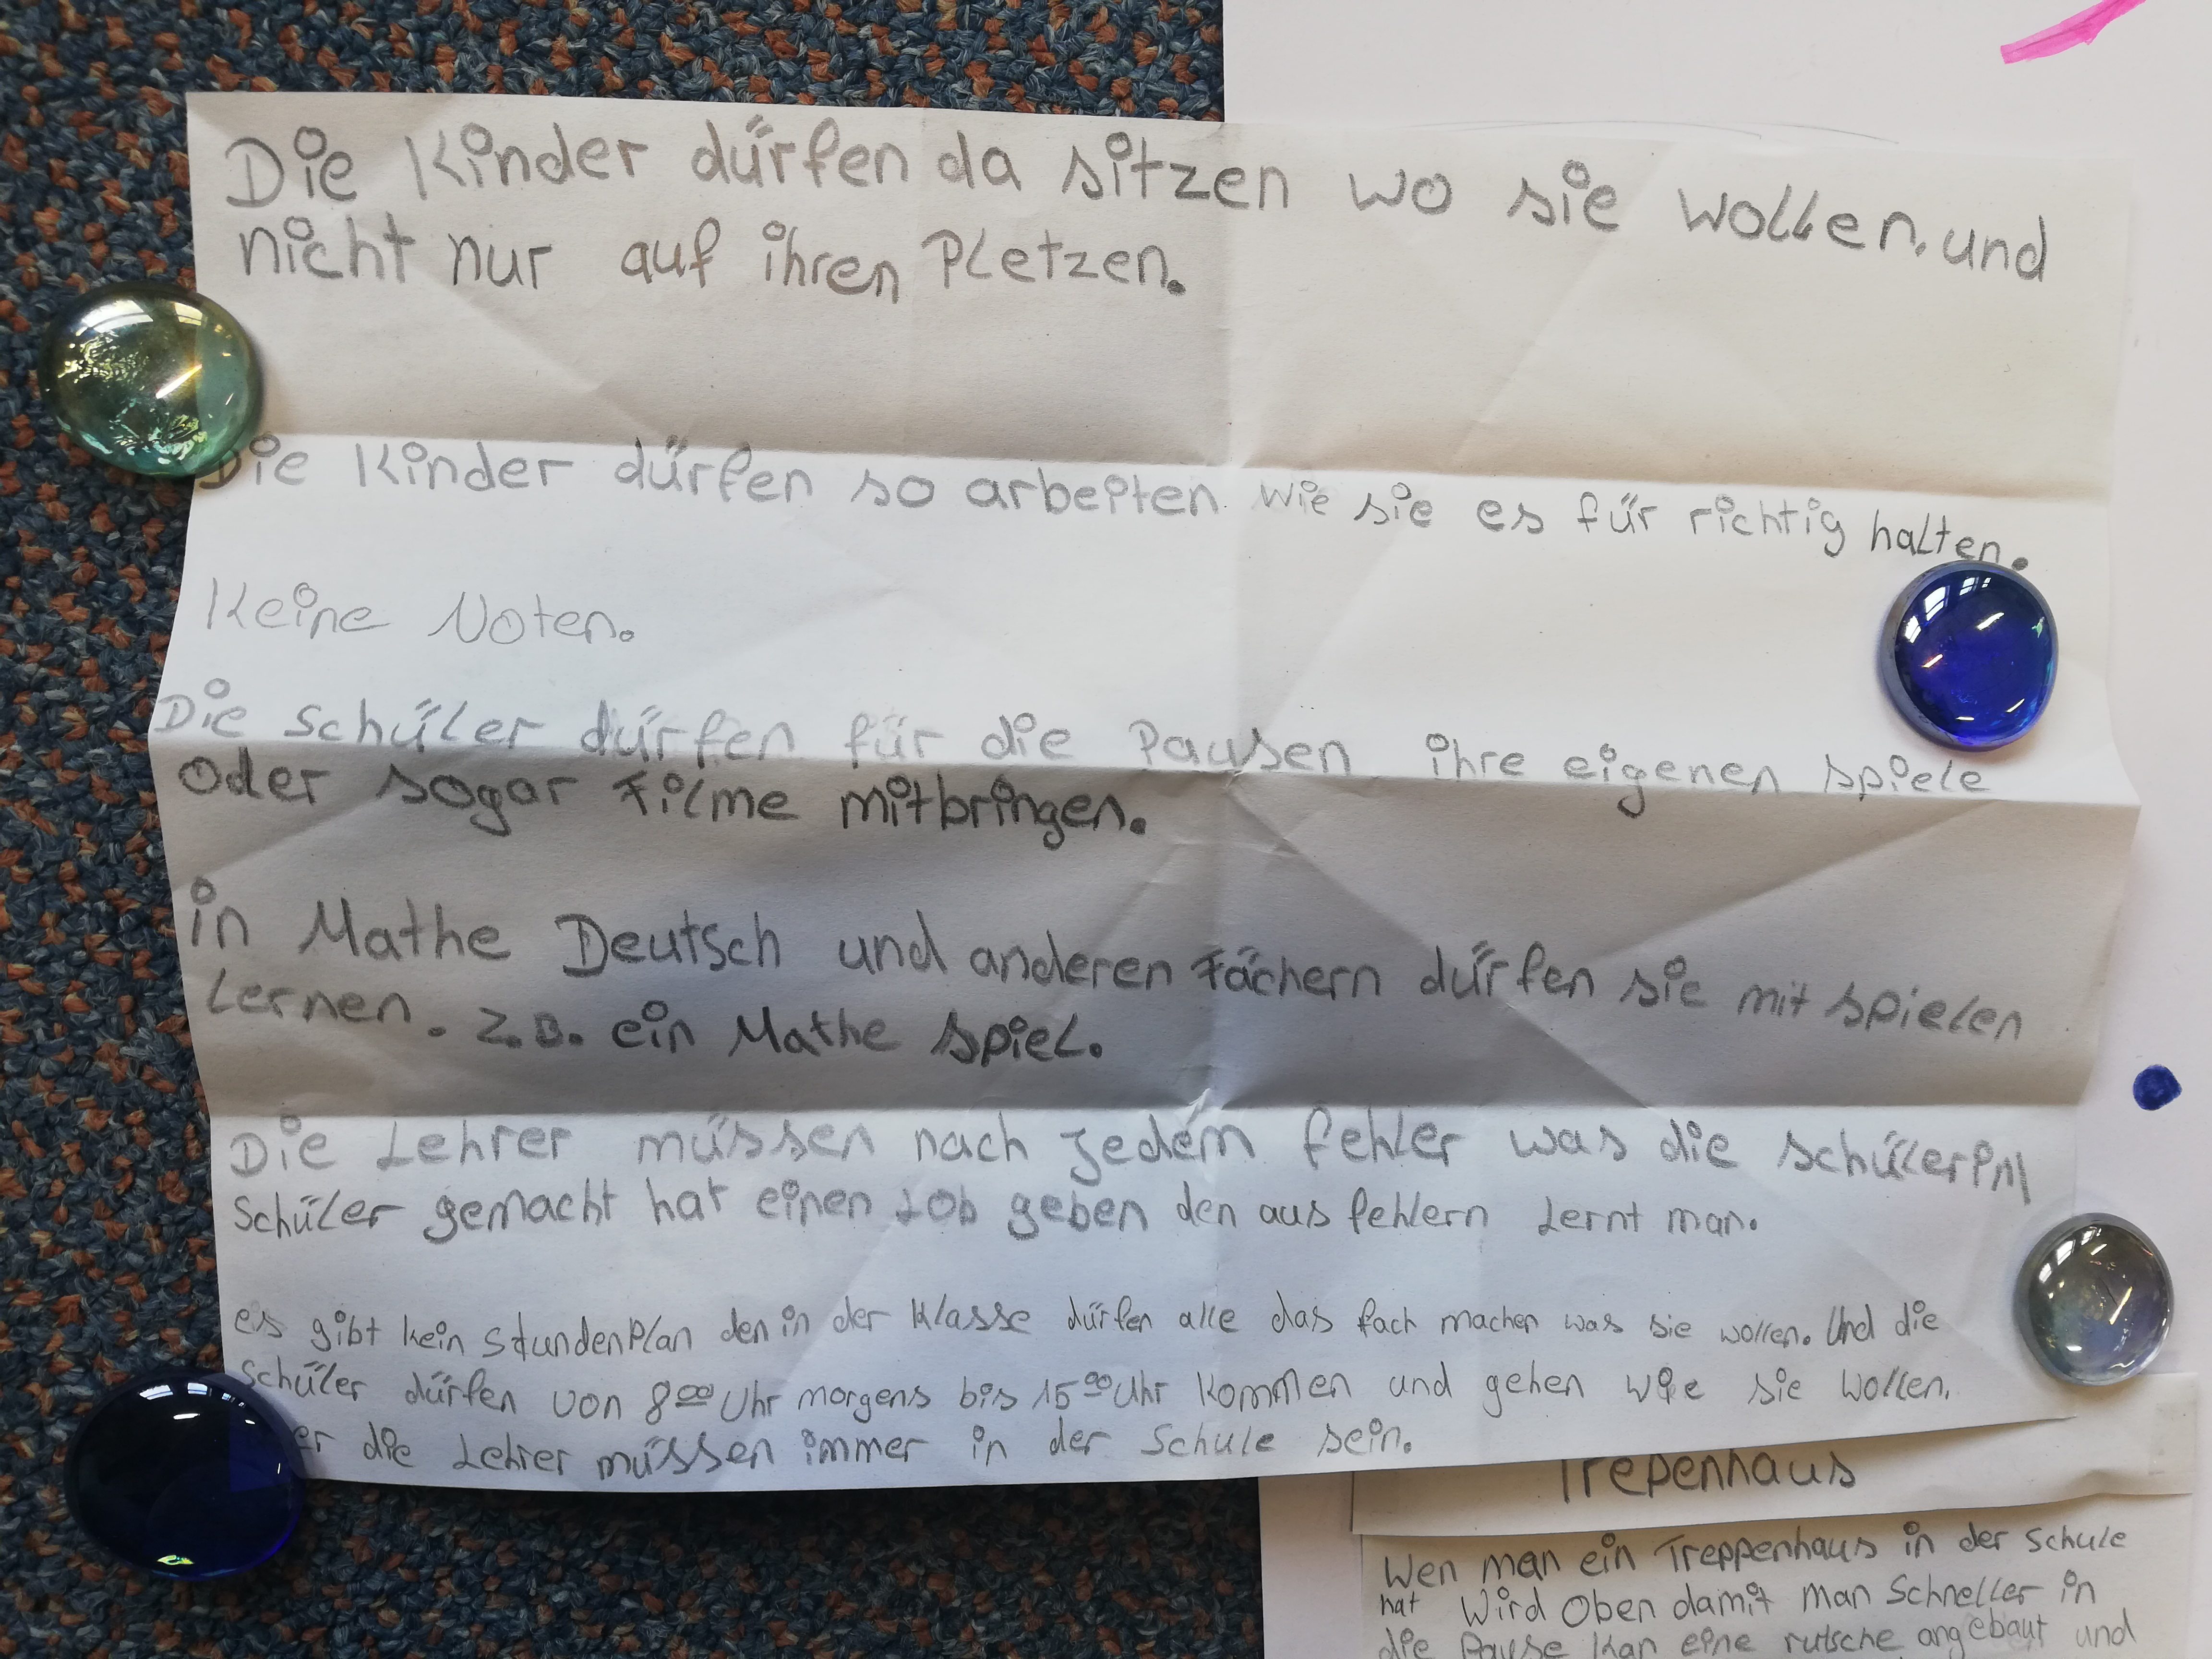 Die Kinder dürfen da sitzen wo sie wollen. und
nicht nur auf ihren Pletzen.
Die Kinder dürfen so arbeiten wie sie es für richtig halten.
Keine Noten.
Die Schüler dürfen für die Pausen ihre eigenen spiele
Oder sogar Filme mitbringen.
in Mathe Deutsch und anderen Fächern dürfen sie mit spielen
Lernen. z.B. ein Mathe spiel.
Die Lehrer müssen nach jedem fehler was die schülerin/
Schüler gemacht hat einen Lob geben den aus fehlern Lernt man.
es gibt kein StundenPlan den in der Klasse dürfen alle das fach machen was sie wollen. Und die
Schüler dürfen von 8 00 Uhr morgens bis 15 00 Uhr kommen und gehen wie sie wollen.
die Lehrer müssen immer in der Schule sein.
Trepenhaus
Wen man ein Treppenhaus in der Schule
hat Wird Oben damit man Schneller in
die Pause kan eine rutsche angebaut und